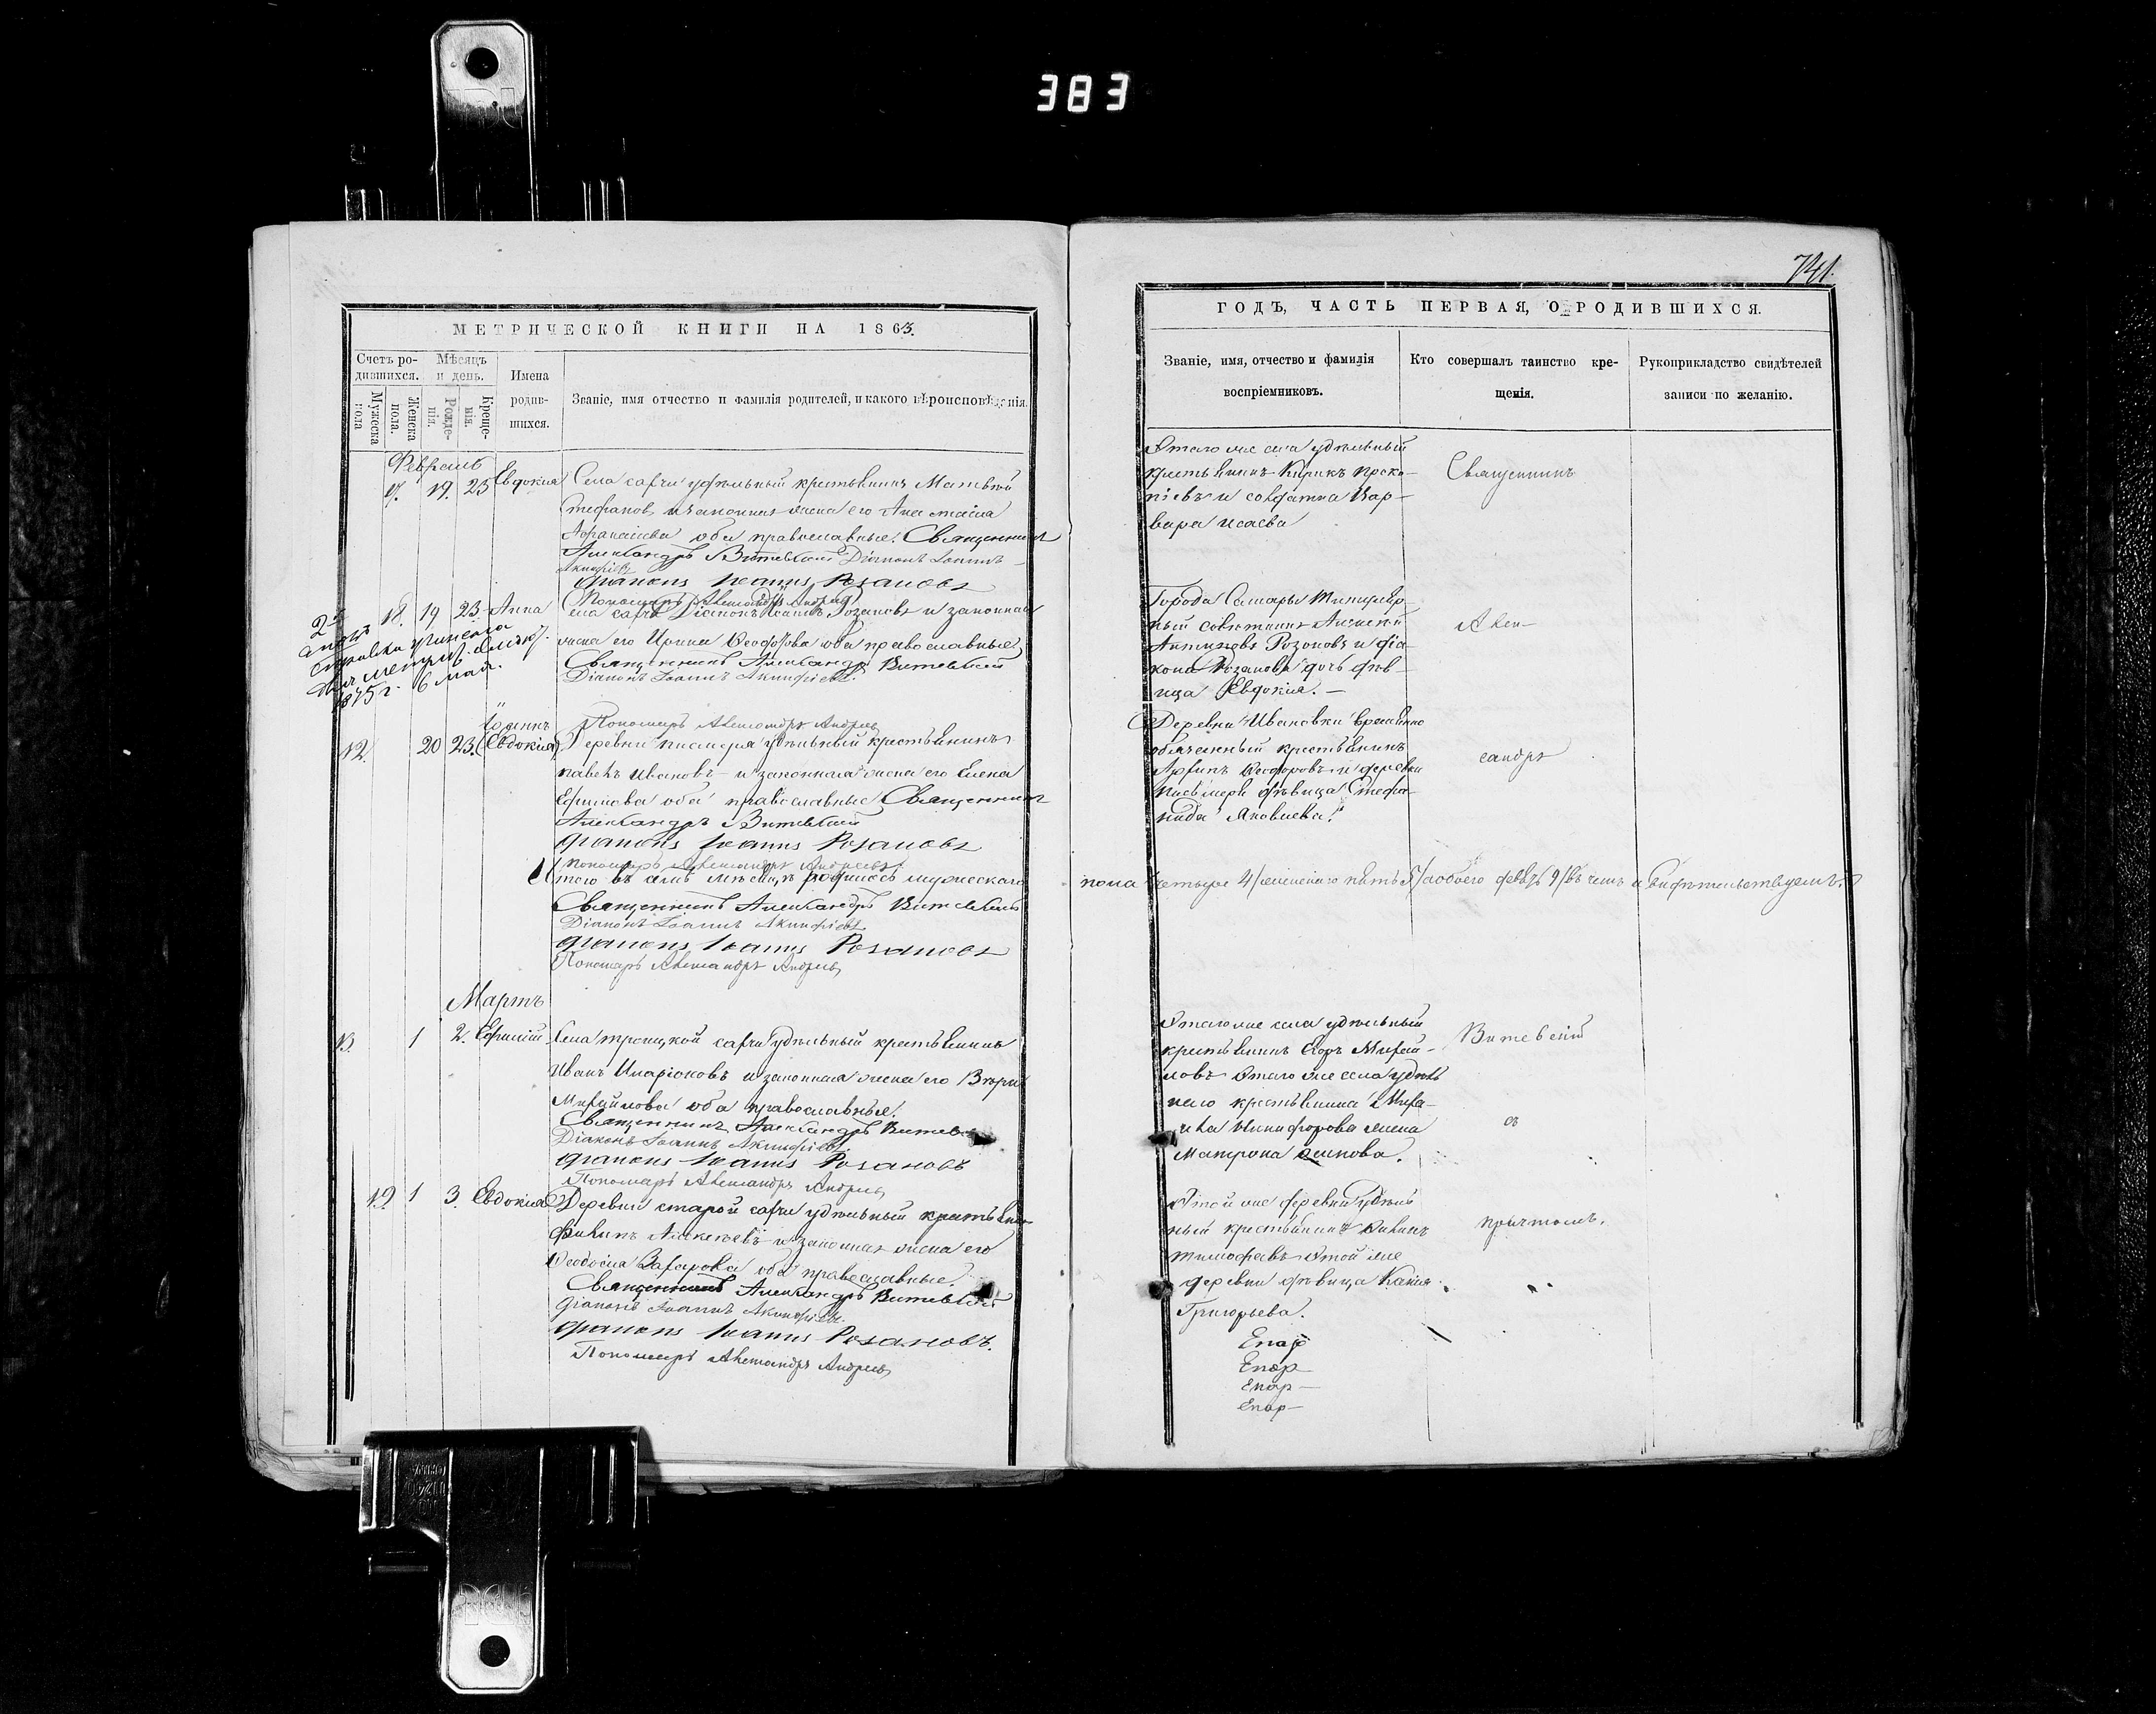 383
741.
МЕТРИЧЕСКОЙ КНИГИ НА 1863.
Счетъ ро-
дившихся.
Мѣсяцъ
и день.
Имена
родив-
шихся.
Мужеска
пола
Женска
пола.
Рожде-
нія.
Креще-
нія.
Званіе, имя отчество и фамилія родителей, и какого вѣроисповѣданія.
Февраль
17. 19. 23 Евдокия Села сагчи удѣльный крестьянинъ Матвѣй
Стефановъ и законная жена его Анастасия
оба православные. Священникъ
Александръ Витевский Діаконъ Іоаннъ
Акинфіевъ
Діаконъ Іоаннъ Розановъ
Пономарь Александръ Андреевъ
18. 19 23 Анна Діаконъ Іоаннъ Розановъ и законная
жена его Ирина Ѳеодорова оба православные
Священникъ Александръ Витевский
Діаконъ Іоаннъ Акинфіевъ.
1875 г. 6 мая.
Пономарь Александръ Андреевъ
Іоаннъ
12. 20 23. (Евдокия) Деревни удѣльный крестьянинъ
павелъ Ивановъ и законная жена его Елена
Ефимова оба православные Священникъ
Александръ Витевский
Діаконъ Іоаннъ Розановъ
Пономарь Александръ Андреевъ
Итого въ семъ мѣсяцѣ родилось мужескаго
Священникъ Александръ Витевский
Діаконъ Іоаннъ Акинфіевъ
Діаконъ Іоаннъ Розановъ
Пономарь Александръ Андреевъ
Мартъ
13. 1 2. Ефимій Села троицкой удѣльный крестьянинъ
Иванъ Иларіоновъ и законная жена его
Михайлова оба православные.
Священникъ Александръ Витевский
Діаконъ Іоаннъ Акинфіевъ
Діаконъ Іоаннъ Розановъ
Пономарь Александръ Андреевъ
19. 1 3. Евдокия Деревни старой удѣльный крестьянинъ
Филипъ и законная жена его
Ѳеодосия Захарова оба православные.
Священникъ Александръ Витевский
Діаконъ Іоаннъ Акинфіевъ.
Діаконъ Іоаннъ Розановъ.
Пономарь Александръ Андреевъ
ГОДЪ, ЧАСТЬ ПЕРВАЯ, О РОДИВШИХСЯ.
Званіе, имя, отчество и фамилія
воспріемниковъ.
Кто совершалъ таинство кре-
щенія.
Рукоприкладство свидѣтелей
записи по желанію.
Этого же села удѣльный
крестьянинъ Кирикъ Проко-
піевъ и солдатка Вар-
вара Исаева
Священникъ
Города Самары Титуляр-
ный совѣтникъ
Розановъ и діа-
кона Розанова дочь дѣв-
ица Евдокия. —
Алек-
Деревни Ивановки временно
обязанный крестьянинъ
Ѳеодоровъ и деревни
дѣвица Стефа-
нида Яковлева.
сандръ
пола четыре 4/ женскаго пять 5/ обоего девять 9/ въ чемъ и свидѣтельствуемъ.
Этого же села удѣльный
крестьянинъ Егоръ Михай-
ловъ этого же села удѣль
наго крестьянина
Никифорова жена
Матрона
Витевскій
съ
Этой же деревни удѣль
ный крестьянинъ
тимофеевъ этой же
деревни дѣвица
Григорьева.
причтомъ.
Епар
Епар
Епар —
Епар —